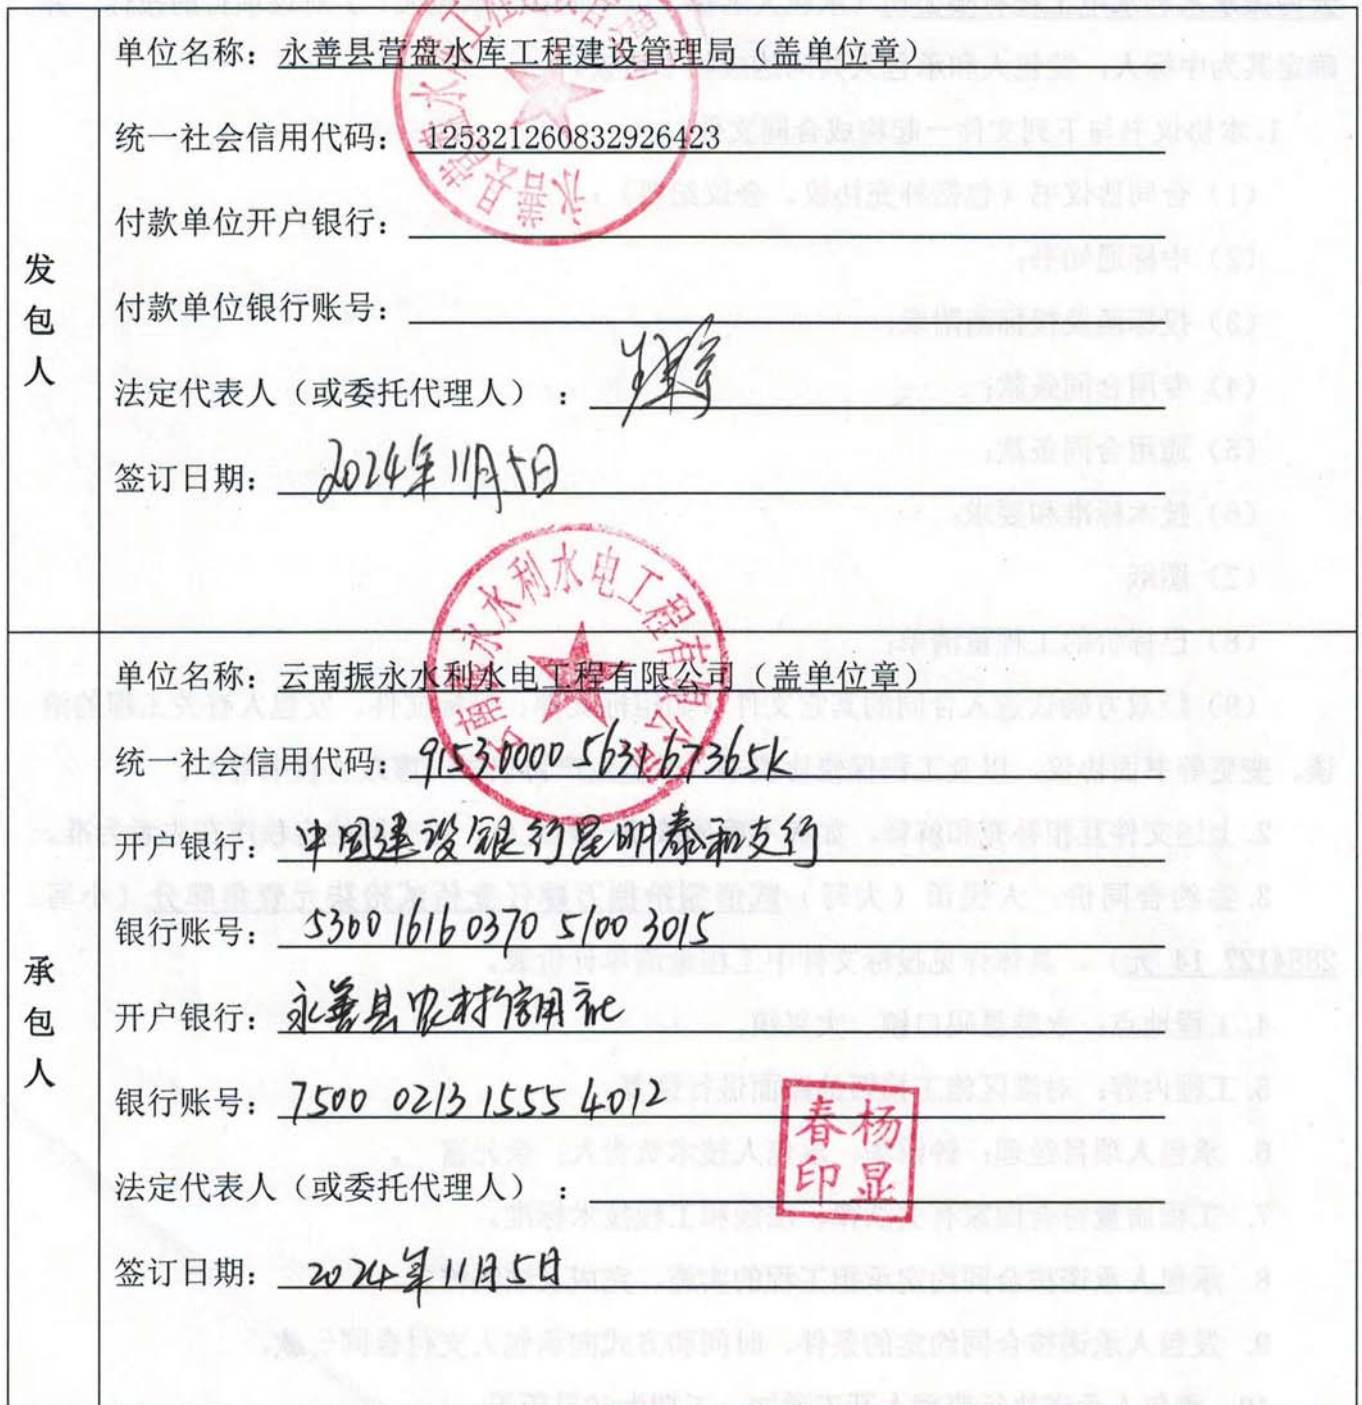 发包人
单位名称：永善县营盘水库工程建设管理局（盖单位章）
统一社会信用代码：125321260832926423
付款单位开户银行：
付款单位银行账号：
法定代表人（或委托代理人）：
签订日期：2024年11月5日
云南振永水利水电工程有限公司
承包人
单位名称：云南振永水利水电工程有限公司（盖单位章）
统一社会信用代码：91530000563167365K
开户银行：中国建设银行昆明泰和支行
银行账号：5300 1616 0370 5100 3015
开户银行：永善县农村信用社
银行账号：7500 0213 1555 4012
法定代表人（或委托代理人）：杨显春印
签订日期：2024年11月5日